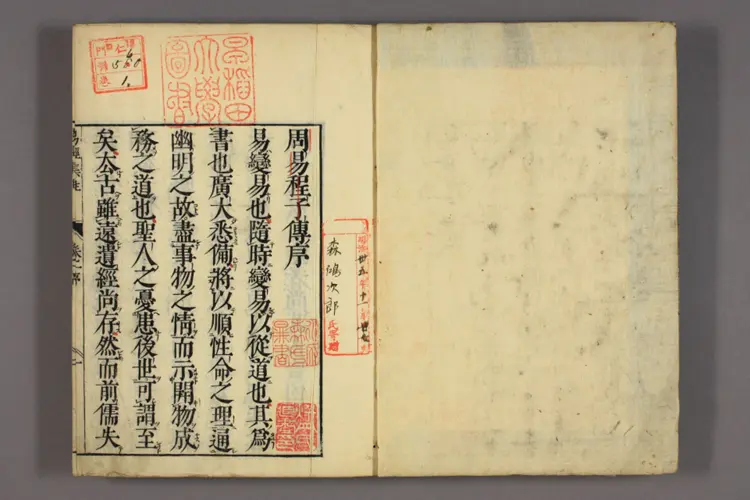 周易程子傳序
易變易也隨時變易以從道也其爲
書也廣大悉備將以順性命之理通
幽明之故盡事物之情而示開物成
務之道也聖人之憂患後世可謂至
矣去古雖遠遺經尚存然而前儒失
早稻田
大學
圖書
森鴻次郎
氏寄贈